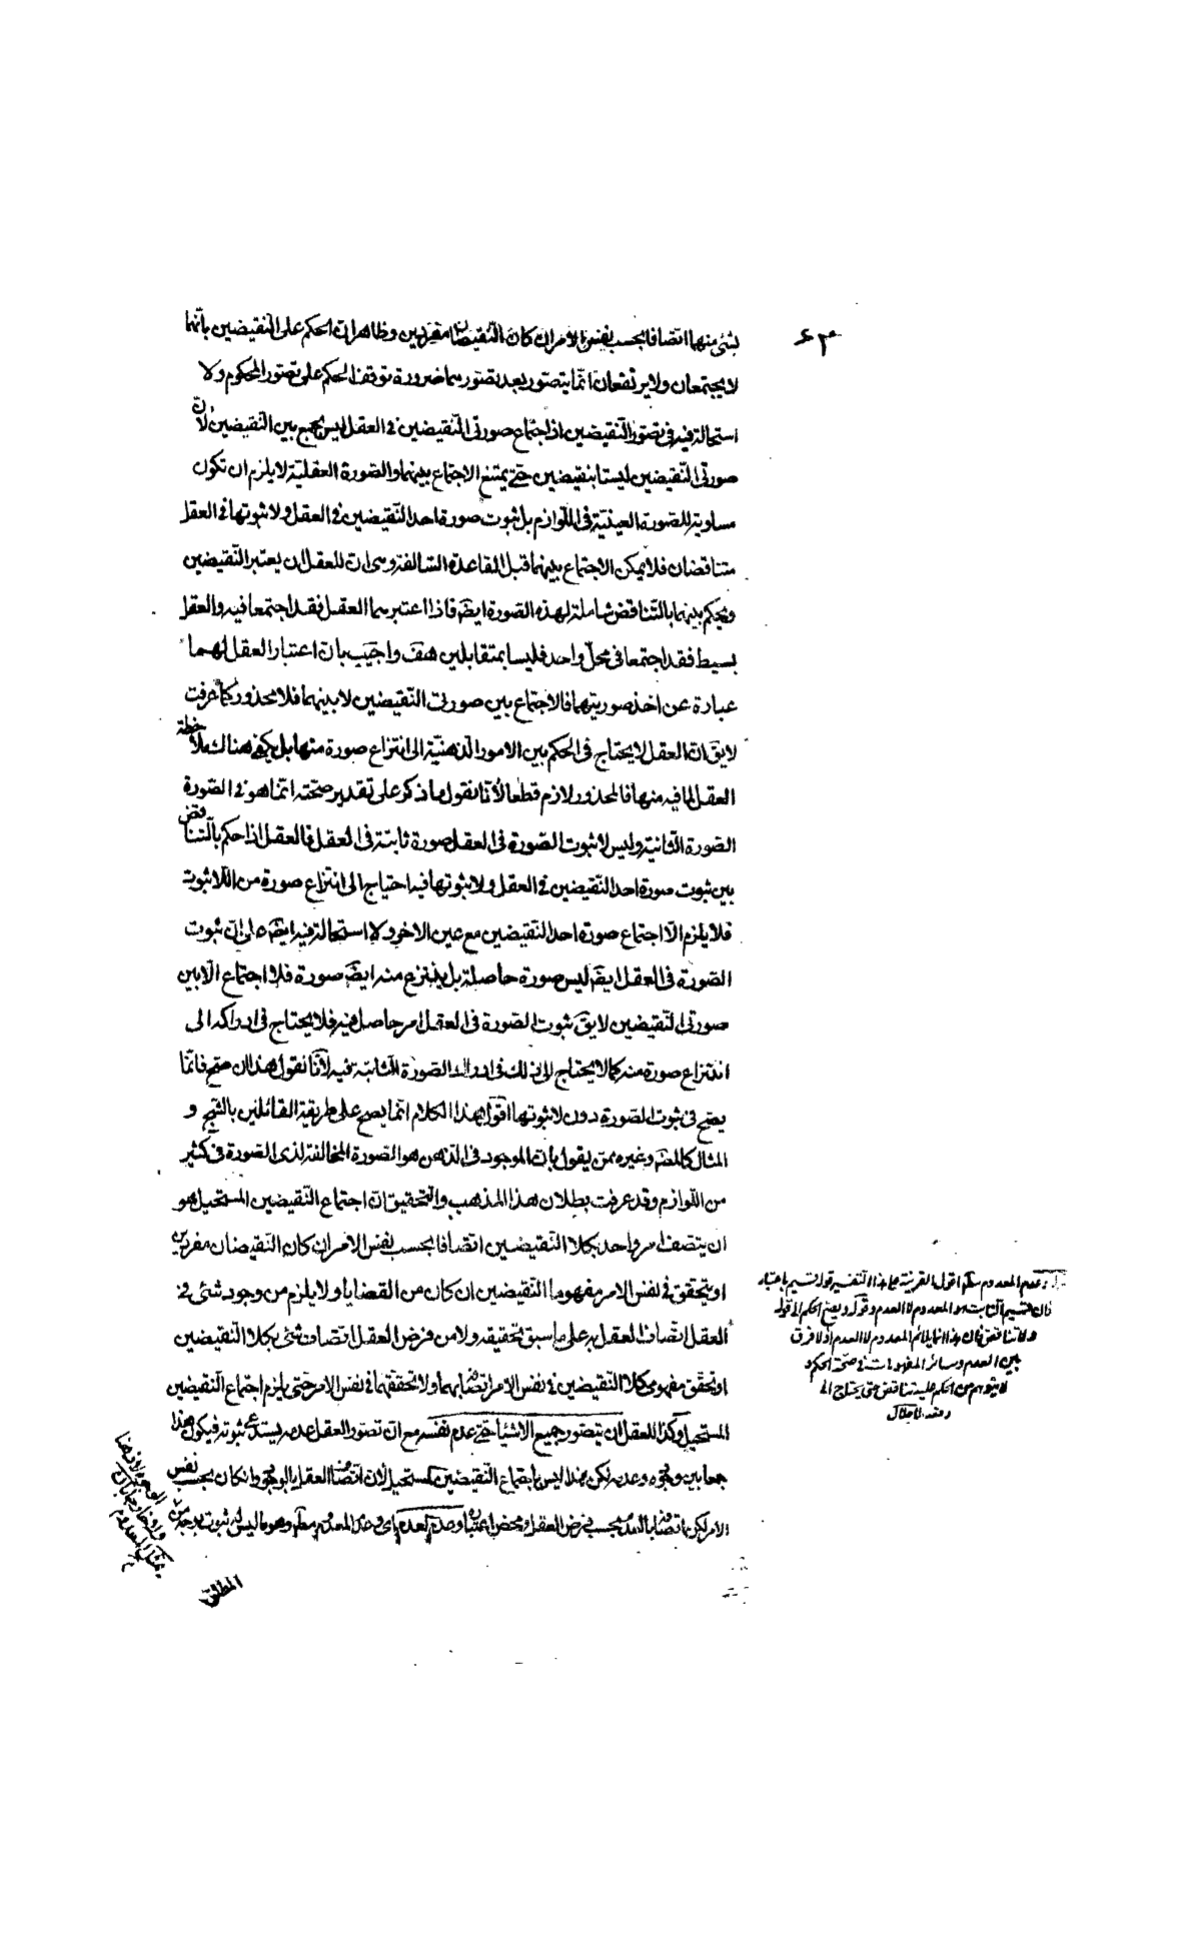 ٤٣
بشئ منهما اتصافا بحسب نفس الامر ان كان النقيضان مفردين وظاهر ان الحكم على النقيضين بانهما
لا يجتمعان ولا يرتفعان انما يتصور بعد تصورهما ضرورة توقف الحكم على تصور المحكوم ولا
استحالة فيه في تصور النقيضين اذ اجتماع صورتي النقيضين في العقل ليس بجمع بين النقيضين لان
صورتي النقيضين ليستا بنقيضين حتى يمتنع الاجتماع بينهما والصورة العقلية لا يلزم ان تكون
مساوية للصورة العينية في اللوازم بل ثبوت صورة احد النقيضين في العقل ولا ثبوتها في العقل
متناقضان فلا يمكن الاجتماع بينهما قيل المقاعدة السالفة وهي ان للعقل ان يعتبر النقيضين
ويحكم بينهما بالتناقض شاملة لهذه الصورة ايضا فاذا اعتبرهما العقل فقد اجتمعا فيه والعقل
بسيط فقد اجتمعا في محل واحد فليسا بمتقابلين هف واجيب بان اعتبار العقل لهما
عبارة عن اخذ صورتيهما فالاجتماع بين صورتي النقيضين لا بينهما فلا محذور كما عرفت
لايق ان العقل لا يحتاج في الحكم بين الامور الذهنية الى انتزاع صورة منها بل يكفي هناك ملاحظة
العقل لما فيه منها فالمحذور لازم قطعا لانا نقول ما ذكر على تقدير صحته انما هو في الصورة
الصورة الثانية وليس لا ثبوت الصورة في العقل صورة ثابتة في العقل فالعقل اذا حكم بالتناقض
بين ثبوت صورة احد النقيضين في العقل ولا ثبوتها فيه احتياج الى انتزاع صورة من اللا ثبوت
فلا يلزم الا اجتماع صورة احد النقيضين مع عين الاخر ولا استحالة فيه ايضا على ان ثبوت
الصورة في العقل ايضا ليس صورة حاصلة بل ينتزع منه ايضا صورة فلا اجتماع الا بين
صورتي النقيضين لايق ثبوت الصورة في العقل امر حاصل فيه فلا يحتاج في ادراكه الى
انتزاع صورة منه كما لا يحتاج الى ذلك في ادراك الصورة الثابتة فيه لانا نقول هذا ان صح فانما
يصح في ثبوت الصورة دون لا ثبوتها اقول هذا الكلام انما يصح على طريقة القائلين بالشبح و
المثال كالمصـ وغيره ممن يقول بان الموجود في الذهن هو الصورة المخالفة لذي الصورة في كثير
من اللوازم وقد عرفت بطلان هذا المذهب والتحقيق ان اجتماع النقيضين المستحيل هو
ان يتصف امر واحد بكلا النقيضين اتصافا بحسب نفس الامر ان كان النقيضان مفردين
او يتحقق في نفس الامر مفهوما النقيضين ان كان من القضايا ولا يلزم من وجود شئ في
العقل اتصاف العقل به على ما سبق تحقيقه ولا من فرض العقل اتصاف شئ بكلا النقيضين
او تحقق مفهومي كلا النقيضين في نفس الامر اتصافه بهما ولا تحققهما في نفس الامر حتى يلزم اجتماع النقيضين
المستحيل وكذا للعقل ان يتصور جميع الاشياء حتى عدم نفسه مع ان تصور العقل عدمه يستدعي ثبوته فيكون هذا
جمعا بين وجوده وعدمه لكن هذا ليس باجتماع النقيضين المستحيل لان اتصاف العقل بالوجود وان كان بحسب نفس
الامر لكن اتصافه بالعدم بحسب فرض العقل ومحض اعتباره وعدم العدم اي وعدم المعدوم مطلقا وهو ما ليس له ثبوت بوجه من
المطلق
عدم المعدوم مطلقا اقول القرينة على هذا التفسير قوله نقسيم باعتبار
فان قسيم الثابت هو المعدوم لا العدم وقوله ويصح الحكم الى قوله
ولا تناقض فان هذا انما يلائم المعدوم لا العدم اذ لا فرق
بين العدم وسائر المفهومات في صحة الحكم و
لا يتوهم من الحكم عليه تناقض حتى يحتاج الى